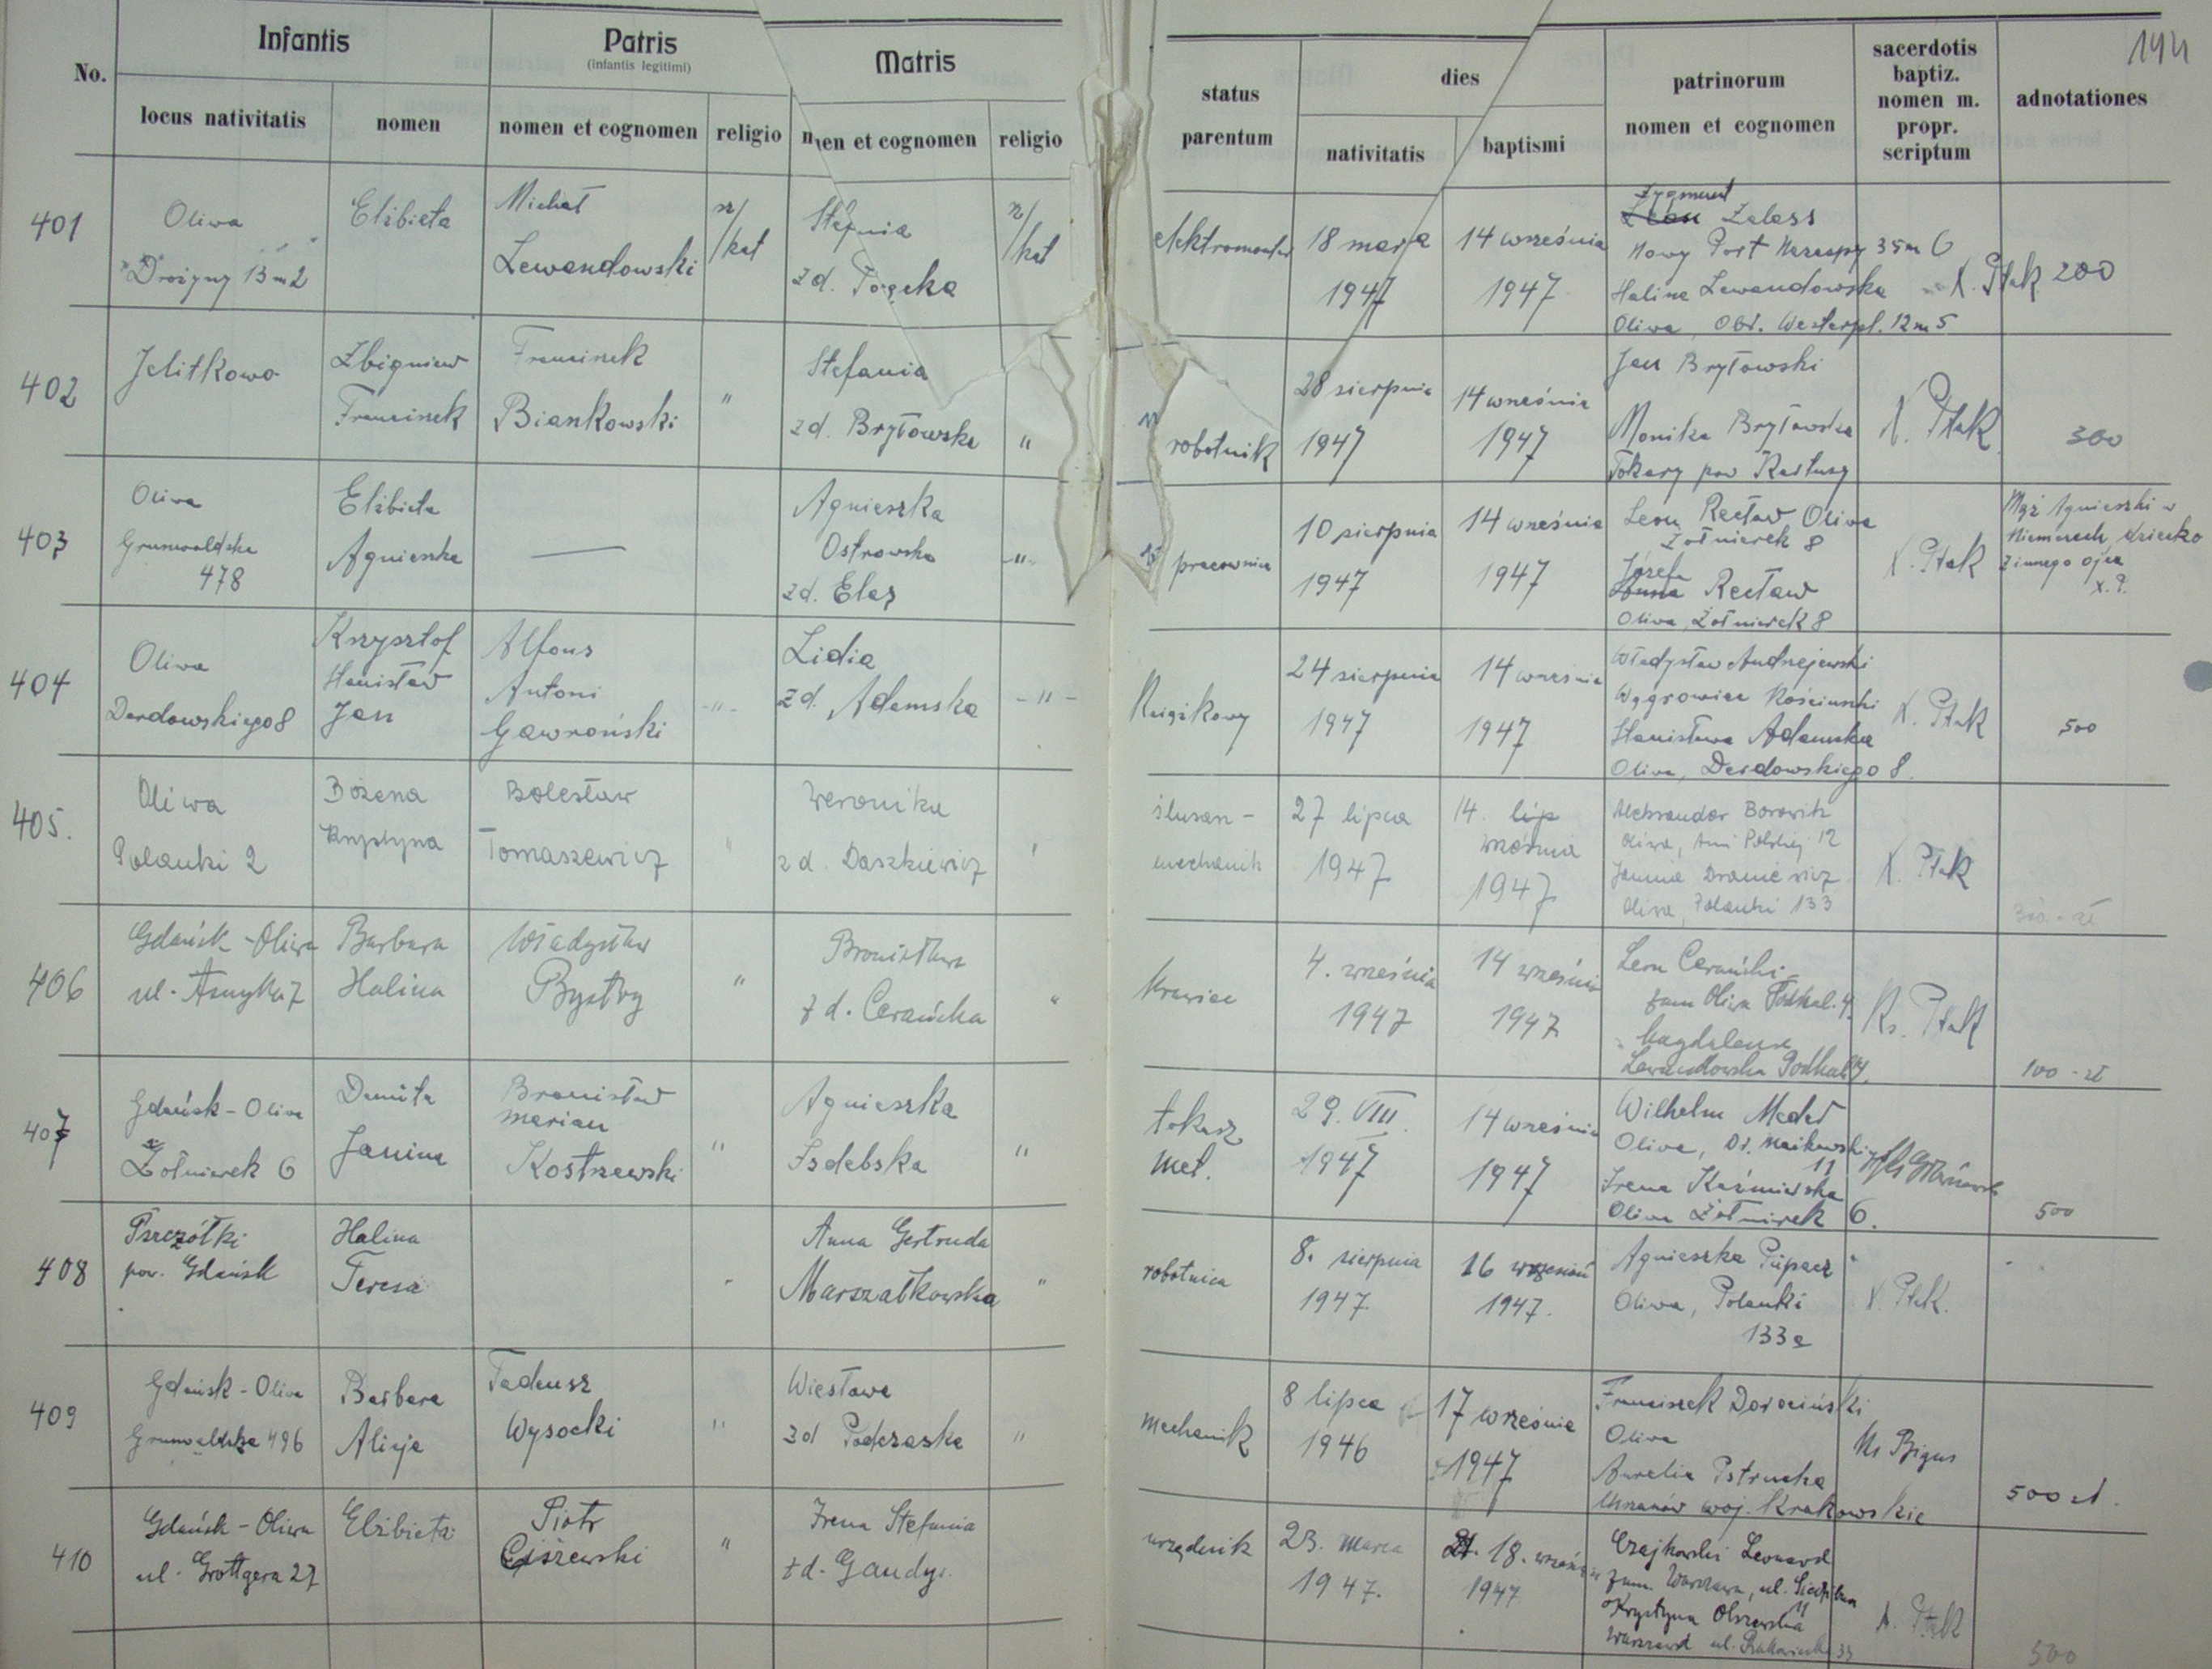 194
No.
Infantis
Patris
(infantis legitimi)
Matris
status parentum
dies
patrinorum nomen et cognomen
sacerdotis baptiz. nomen m. propr. scriptum
adnotationes
locus nativitatis
nomen
nomen et cognomen
religio
nomen et cognomen
religio
nativitatis
baptismi
401
Oliwa
13 m 2
Elżbieta
Michał
Lewandowski
rz/kat
Stefania
zd.
rz/kat
elektromonter
18 maja
1947
14 września
1947
Zygmunt
Zaless
Nowy Port 35 m 6
Halina Lewandowska
Oliwa, Obr. Westerpl. 12 m 5
X. Ptak
200
402
Jelitkowo
Zbigniew
Franciszek
Franciszek
Biankowski
"
Stefania
zd. Bryłowska
"
robotnik
28 sierpnia
1947
14 września
1947
Jan Bryłowski
Monika Bryłowska
Tokary pow Kartuzy
X. Ptak
300
403
Oliwa
Grunwaldzka
478
Elżbieta
Agnieszka
—
Agnieszka
Ostrowska
zd. Elas
-"-
pracownica
10 sierpnia
1947
14 września
1947
Leon Recław Oliwa
Żołnierek 8
Józefa
Recław
Oliwa, Żołnierek 8
X. Ptak
Mąż Agnieszki w
Niemczech, dziecko
z innego ojca
X. P.
404
Oliwa
Derdowskiego 8
Krzysztof
Stanisław
Jan
Alfons
Antoni
Gawroński
-"-
Lidia
zd. Adamska
-"-
Książkowy
24 sierpnia
1947
14 września
1947
Władysław Andrzejewski
Wągrowiec Kościuszki
Stanisława Adamska
Oliwa, Derdowskiego 8.
X. Ptak
500
405.
Oliwa
Polanki 2
Bożena
Krystyna
Bolesław
Tomaszewicz
"
Weronika
zd. Daszkiewicz
'
ślusarz -
mechanik
27 lipca
1947
14. lip
września
1947
Aleksander
Oliwa, Armi Polskiej 12
Janina
Oliwa, Polanki 133
X. Ptak
406
Gdańsk - Oliwa
ul. Asnyka 7
Barbara
Halina
Władysław
Bystry
"
Bronisława
z d. Cerańska
"
Krawiec
4. września
1947
14 września
1947
Leon Cerański
zam Oliwa Podhal. 4.
Magdalena
Lewandowska
Ks. Ptak
100 - zł
407
Gdańsk - Oliwa
Żołnierek 6
Danuta
Janina
Bronisław
Marian
Kostrzewski
"
Agnieszka
Izdebska
"
tokarz
met.
29. VIII.
1947
14 września
1947
Wilhelm
Oliwa, Dr. Majkowskiego
11
Irena Kaźmierska
Oliwa Żołnierek 6.
500
408
Pszczółki
pow. Gdańsk
Halina
Teresa
"
Anna Gertruda
Marszałkowska
"
robotnica
8. sierpnia
1947.
16 wrzesień
1947.
Agnieszka
Oliwa, Polanki
133a
X. Ptak.
409
Gdańsk - Oliwa
Grunwaldzka 496
Barbara
Alicja
Tadeusz
Wysocki
"
Wiesława
zd Podczaska
"
mechanik
8 lipca
1946
17 września
1947
Franciszek Dorociński
Oliwa
Aurelia Pstrucha
Chrzanów woj. Krakowskie
Ks Bigus
500 zł.
410
Gdańsk - Oliwa
ul. Grottgera 27
Elżbieta
Piotr
Ciszewski
"
Irena Stefania
z d. Gaudys.
urzędnik
23. marca
1947.
18. września
1947
Czajkowski Leonard
zam. Warszawa, ul.
11
Krystyna Olszewska
Warszawa ul. 33
X. Ptak
500